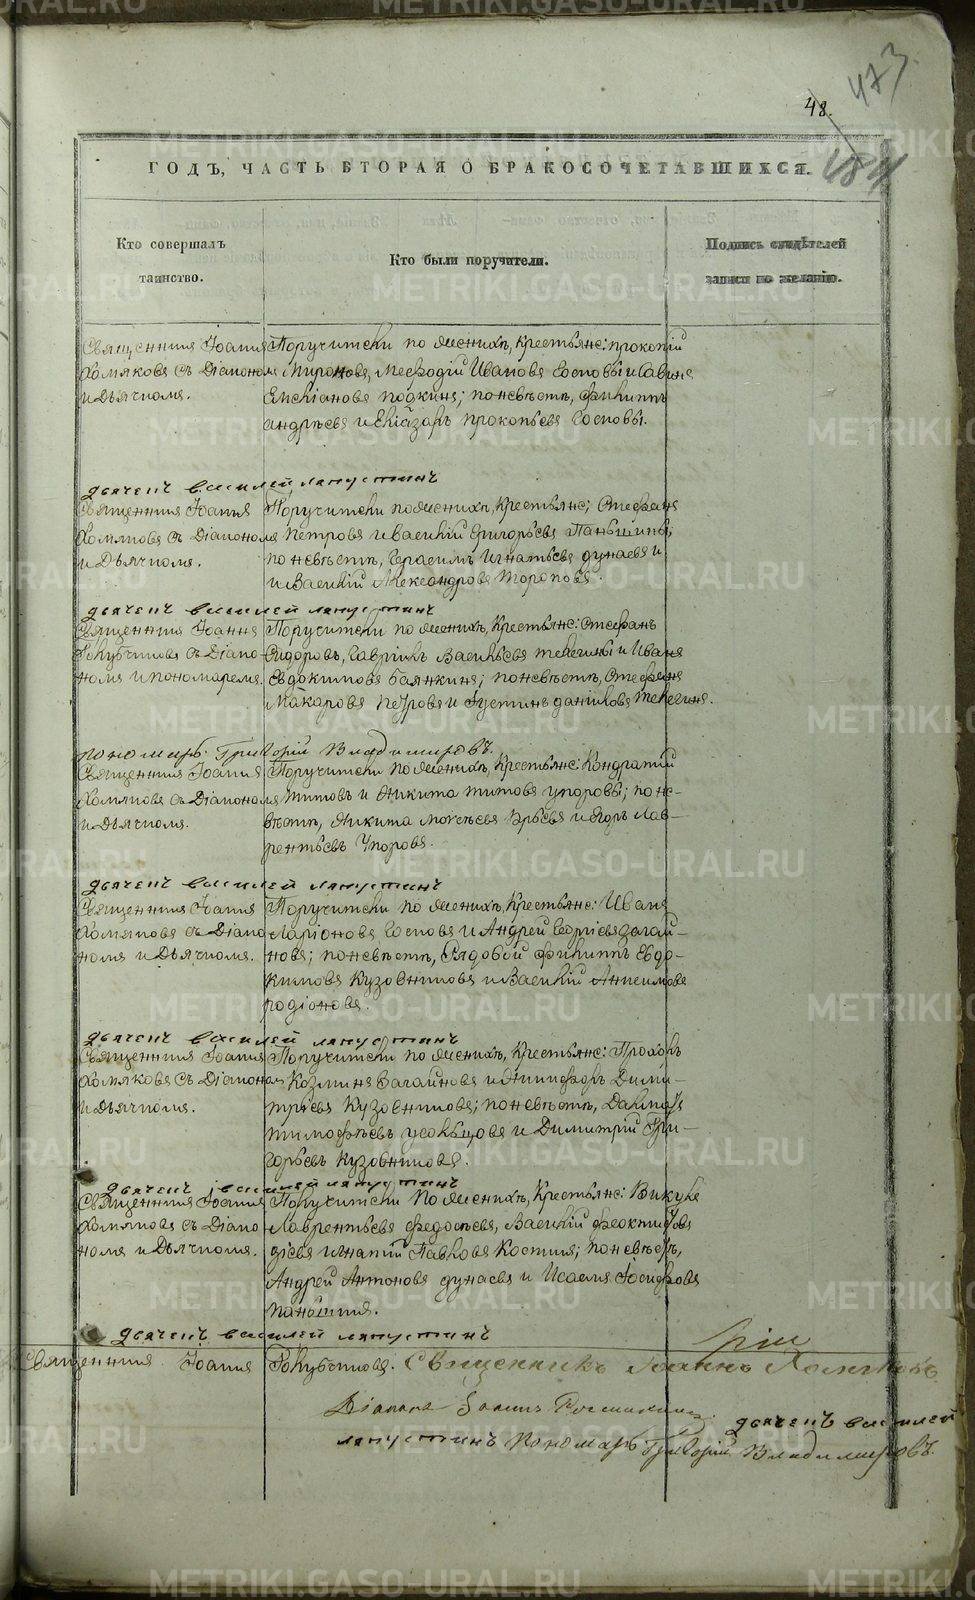 473
48.
484
ГОДЪ, ЧАСТЬ ВТОРАЯ О БРАКОСОЧЕТАВШИХСЯ.
Кто совершалъ
таинство.
Кто были поручители.
Подпись свидѣтелей
записи по желанію.
Священникъ Іоаннъ
Хомяковъ съ Діакономъ
и Дьячкомъ.
Поручители по женихѣ, Крестьяне: Прокопій
Мироновъ, Мефодій Ивановъ и Савинъ
по невѣстѣ, Филиппъ
Андреевъ и Елиазаръ Прокопьевъ
дьячекъ василей лапустинъ
Священникъ Іоаннъ
Хомяковъ съ Діакономъ
и Дьячкомъ.
Поручители по женихѣ, Крестьяне: Стефанъ
Петровъ и Василій Григорьевъ Паньшины;
по невѣстѣ, Герасимъ Игнатьевъ Дунаевъ и
и Василій Александровъ Тороповъ.
дьячекъ василей лапустинъ
Священникъ Іоаннъ
Голубчиковъ съ Діако-
номъ и пономаремъ.
Поручители по женихѣ, Крестьяне: Стефанъ
Сидоровъ, Гавріилъ Васильевъ Телегины и Иванъ
Евдокимовъ Баянкинъ; по невѣстѣ, Стефанъ
Макаровъ Петровъ и Густинъ Даниловъ Телегинъ.
пономарь Григорій Владимировъ.
Священникъ Іоаннъ
Хомяковъ съ Діакономъ
и Дьячкомъ.
Поручители по женихѣ, Крестьяне: Кондратий
Титовъ и Никита Титовъ Упоровы; по не-
вѣстѣ, Никита Моѵсеевъ и Егоръ Лав-
рентьевъ Упоровъ.
дьячекъ василей лапустинъ
Священникъ Іоаннъ
Хомяковъ съ Діако-
номъ и Дьячкомъ.
Поручители по женихѣ, Крестьяне: Иванъ
Ларіоновъ и Андрей Георгіевъ Загай-
новъ; по невѣстѣ, Рядовой Филиппъ Евдо-
кимовъ Кузовниковъ и Василій Анисимовъ
Родіоновъ.
дьячекъ василей лапустинъ
Священникъ Іоаннъ
Хомяковъ съ Діакономъ
и Дьячкомъ.
Поручители по женихѣ, Крестьяне: Прохоръ
Козминъ Загайновъ и Никифоръ Дими-
тріевъ Кузовниковъ; по невѣстѣ, Далматъ
Тимофѣевъ Усольцовъ и Димитрій Гри-
горьевъ Кузовниковъ.
дьячекъ василей лапустинъ
Священникъ Іоаннъ
Хомяковъ съ Діако-
номъ и Дьячкомъ.
Поручители по женихѣ, Крестьяне: Викулъ
Лаврентьевъ Федосѣевъ, Василій
и Игнатий Павловъ Костинъ; по невѣстѣ,
Андрей Антоновъ Дунаевъ и Исаакъ Іосифовъ
Паньшинъ.
дьячекъ василей лапустинъ
Священникъ Іоаннъ Голубчиковъ. Священникъ Іоаннъ Хомяковъ
Діаконъ Іоаннъ
дьячекъ василей
лапустинъ Пономарь Григорій Владимировъ.